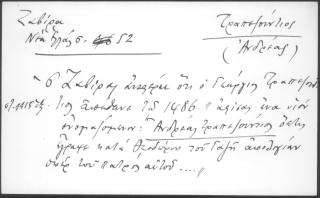 Ζαβίρα
Νέα Ἑλλάς σ. 52
Τραπεζούντιος
(Ἀνδρέας)
"ὁ Ζαβίρας ἀναφέρει ὅτι ὁ Γεώργιος Τραπεζούν
τιος ἀπέθανε τῷ 1486 "ἀφίσας ἕνα υἱὸν
ὀνομαζόμενον: Ἀνδρέας Τραπεζούντιος ὅστις
ἔγραψε κατὰ Θεοδώρου τοῦ Γαζῆ ἀπολογίαν
ὑπὲρ τοῦ πατρὸς αὐτοῦ ....."